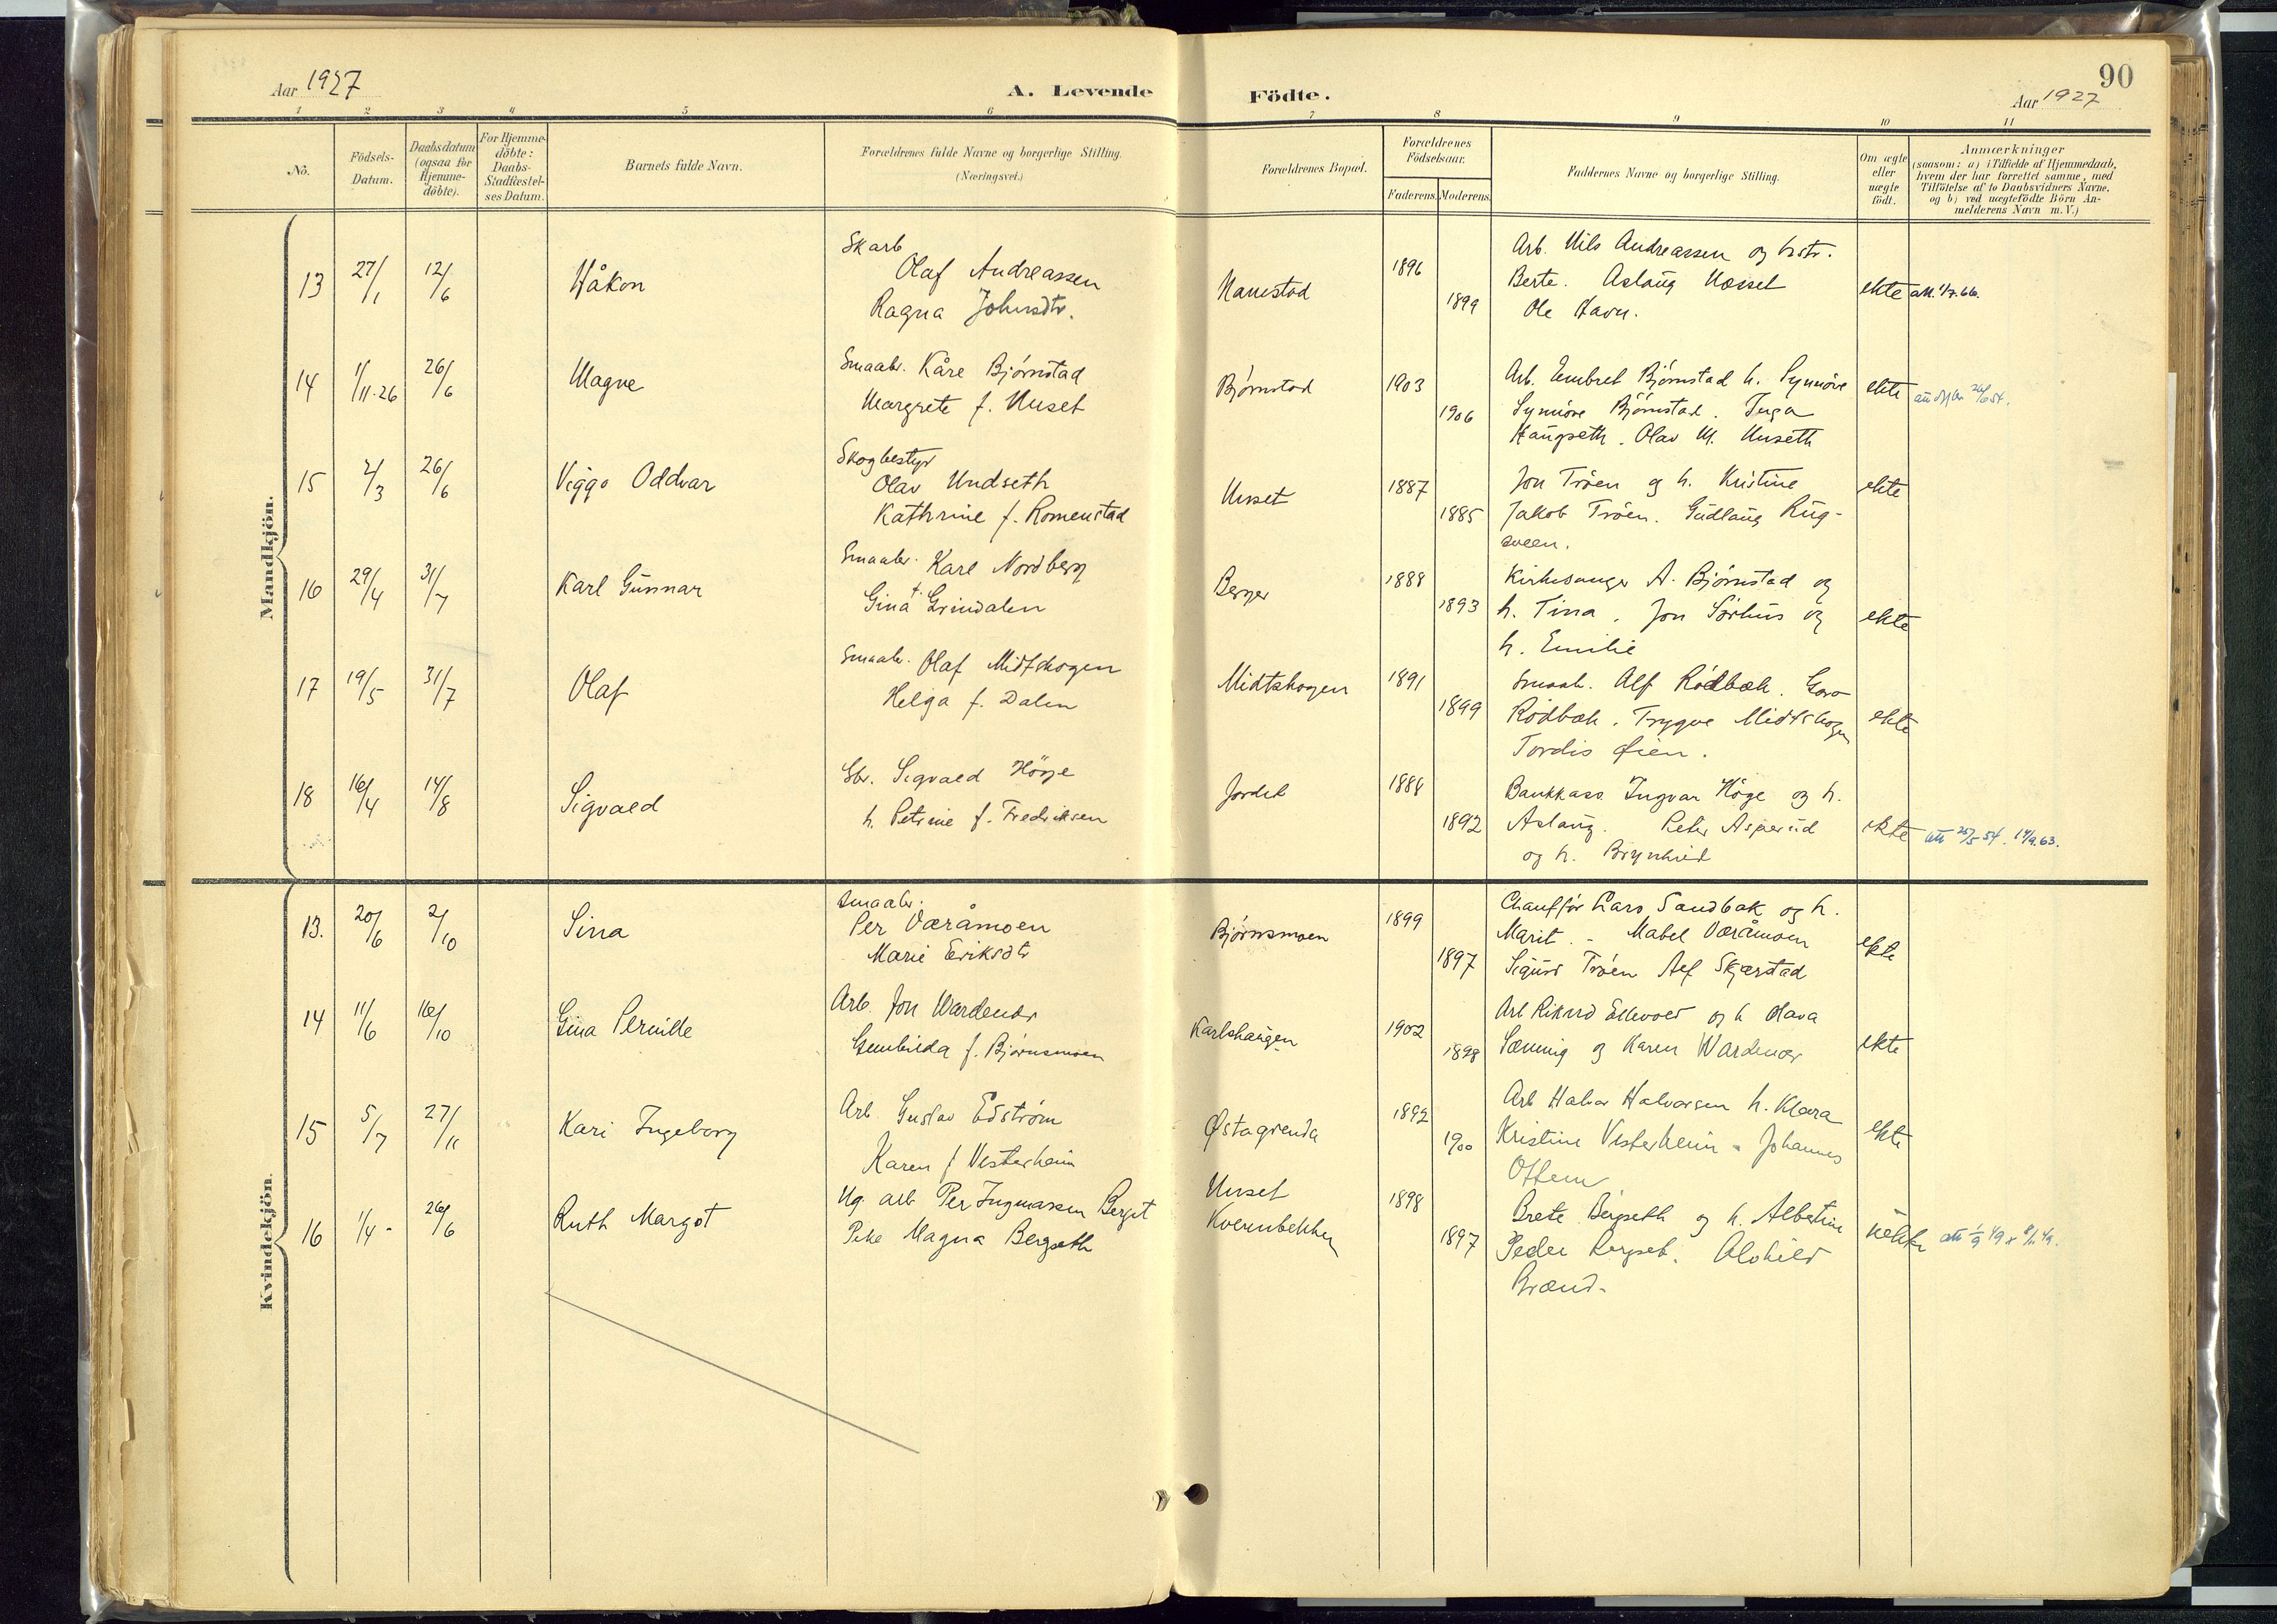 90
Aar 1927
A. Levende
Födte.
Aar 1927
1 2 3 4 5 6 7 8 9 10 11
No.
Födsels-
Datum.
Daabsdatum
(ogsaa for
Hjemme-
döbte).
For Hjemme-
döbte:
Daabs-
Stadfæstel-
ses Datum.
Barnets fulde Navn.
Forældrenes fulde Navne og borgerlige Stilling.
(Næringsvei.)
Forældrenes Bopæl.
Forældrenes
Födselsaar.
Faderens. Moderens.
Faddernes Navne og borgerlige Stilling.
Om ægte
eller
uægte
födt.
Anmærkninger
(saasom: a) i Tilfælde af Hjemmedaab,
hvem der har forrettet samme, med
Tilföielse af to Daabsvidners Navne.
og b) ved uægtefödte Börn An-
melderens Navn m. V.)
Mandkjön.
13 27/1 12/6 Håkon
Skarb
Olaf Andreassen
Ragna Johnsdtr.
Nanestad
1896
1899
Arb. Nils Andreassen og hstr.
Berte. Aslaug Nesset
Ole Havn.
ekte att. 1/7.66.
14 1/11-26 26/6 Magne
Smaabr. Kåre Bjørnstad
Margrete f. Unset
Bjørnstad
1903
1906
Arb. Embret Bjørnstad h. Synnöve
Synnöve Bjørnstad. Inga
Haugseth. Olav M. Unseth
ekte 26/6 54.
15 2/3 26/6 Viggo Oddvar
Skogbestyr
Olav Undseth
Kathrine f. Romenstad
Unset
1887
1885
Jon Tröen og h. Kristine
Jakob Tröen. Gudlaug Rug-
sveen.
ekte
16 29/4 31/7 Karl Gunnar
Smaabr. Karl Nordberg
Gina f. Grindalen
Berger
1888
1893
Kirkesanger A. Bjørnstad og
h. Tina. Jon Sörhus og
h. Emilie
ekte
17 19/5 31/7 Olaf
Smaabr. Olaf Midtskogen
Helga f. Dalen
Midtskogen
1891
1899
Smaab. Alf Rödbæk. Goro
Rödbæk. Trygve Midtskogen
Tordis Øien.
ekte
18 16/4 14/8 Sigvald
Gbr. Sigvald Höye
h. Petrine f. Fredriksen
Jordet
1888
1892
Bankkass. Ingvar Höge og h.
Aslaug. Peter Asperud
og h. Brynhild
ekte att 25/5 54. 14/9.63.
Kvindekjön.
13. 20/6 2/10 Sina
Smaabr.
Per Væråmoen
Marie Eriksdtr
Bjørnsmoen
1899
1897
Chauffør Lars Sandbak og h.
Marit. - Mabel Væråmoen
Sigurd Tröen Alf Skjærstad
ekte
14 11/6 16/10 Gina Pernille
Arb. Jon Wardenær
Gunhilda f. Bjørnsmoen
Karlshaugen
1902
1898
Arb Rikard Ellevold og h Olava
Sæming og Karen Wardenær
ekte
15 5/7 27/11 Kari Ingeborg
Arb. Gustav Edström
Karen f Vesterheim
Østagrenda
1892
1900
Arb Halvor Halvorsen h. Klara
Kristine Vesterheim - Johannes
Ottem
ekte
16 1/4 - 26/6 Ruth Margot
Ug. arb Per Ingmarsen Berget
Pike Magna Bergseth
Unset
Kvernbekken
1898
1897
Brete Bergseth og h. Albertine
Peder Bergset. Alvhild
Brænd.
uekte att 1/9 49 8/11 49.